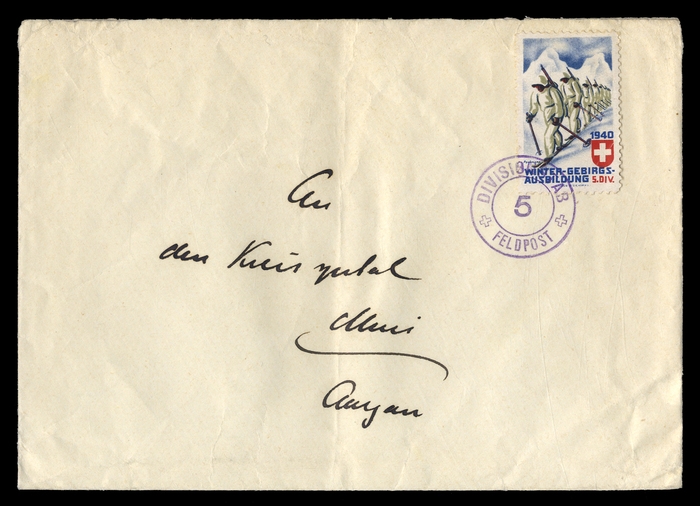 1940
WINTER-GEBIRGS-
AUSBILDUNG 5.DIV.
5
FELDPOST
An
den Kreisspital
Muri
Aargau